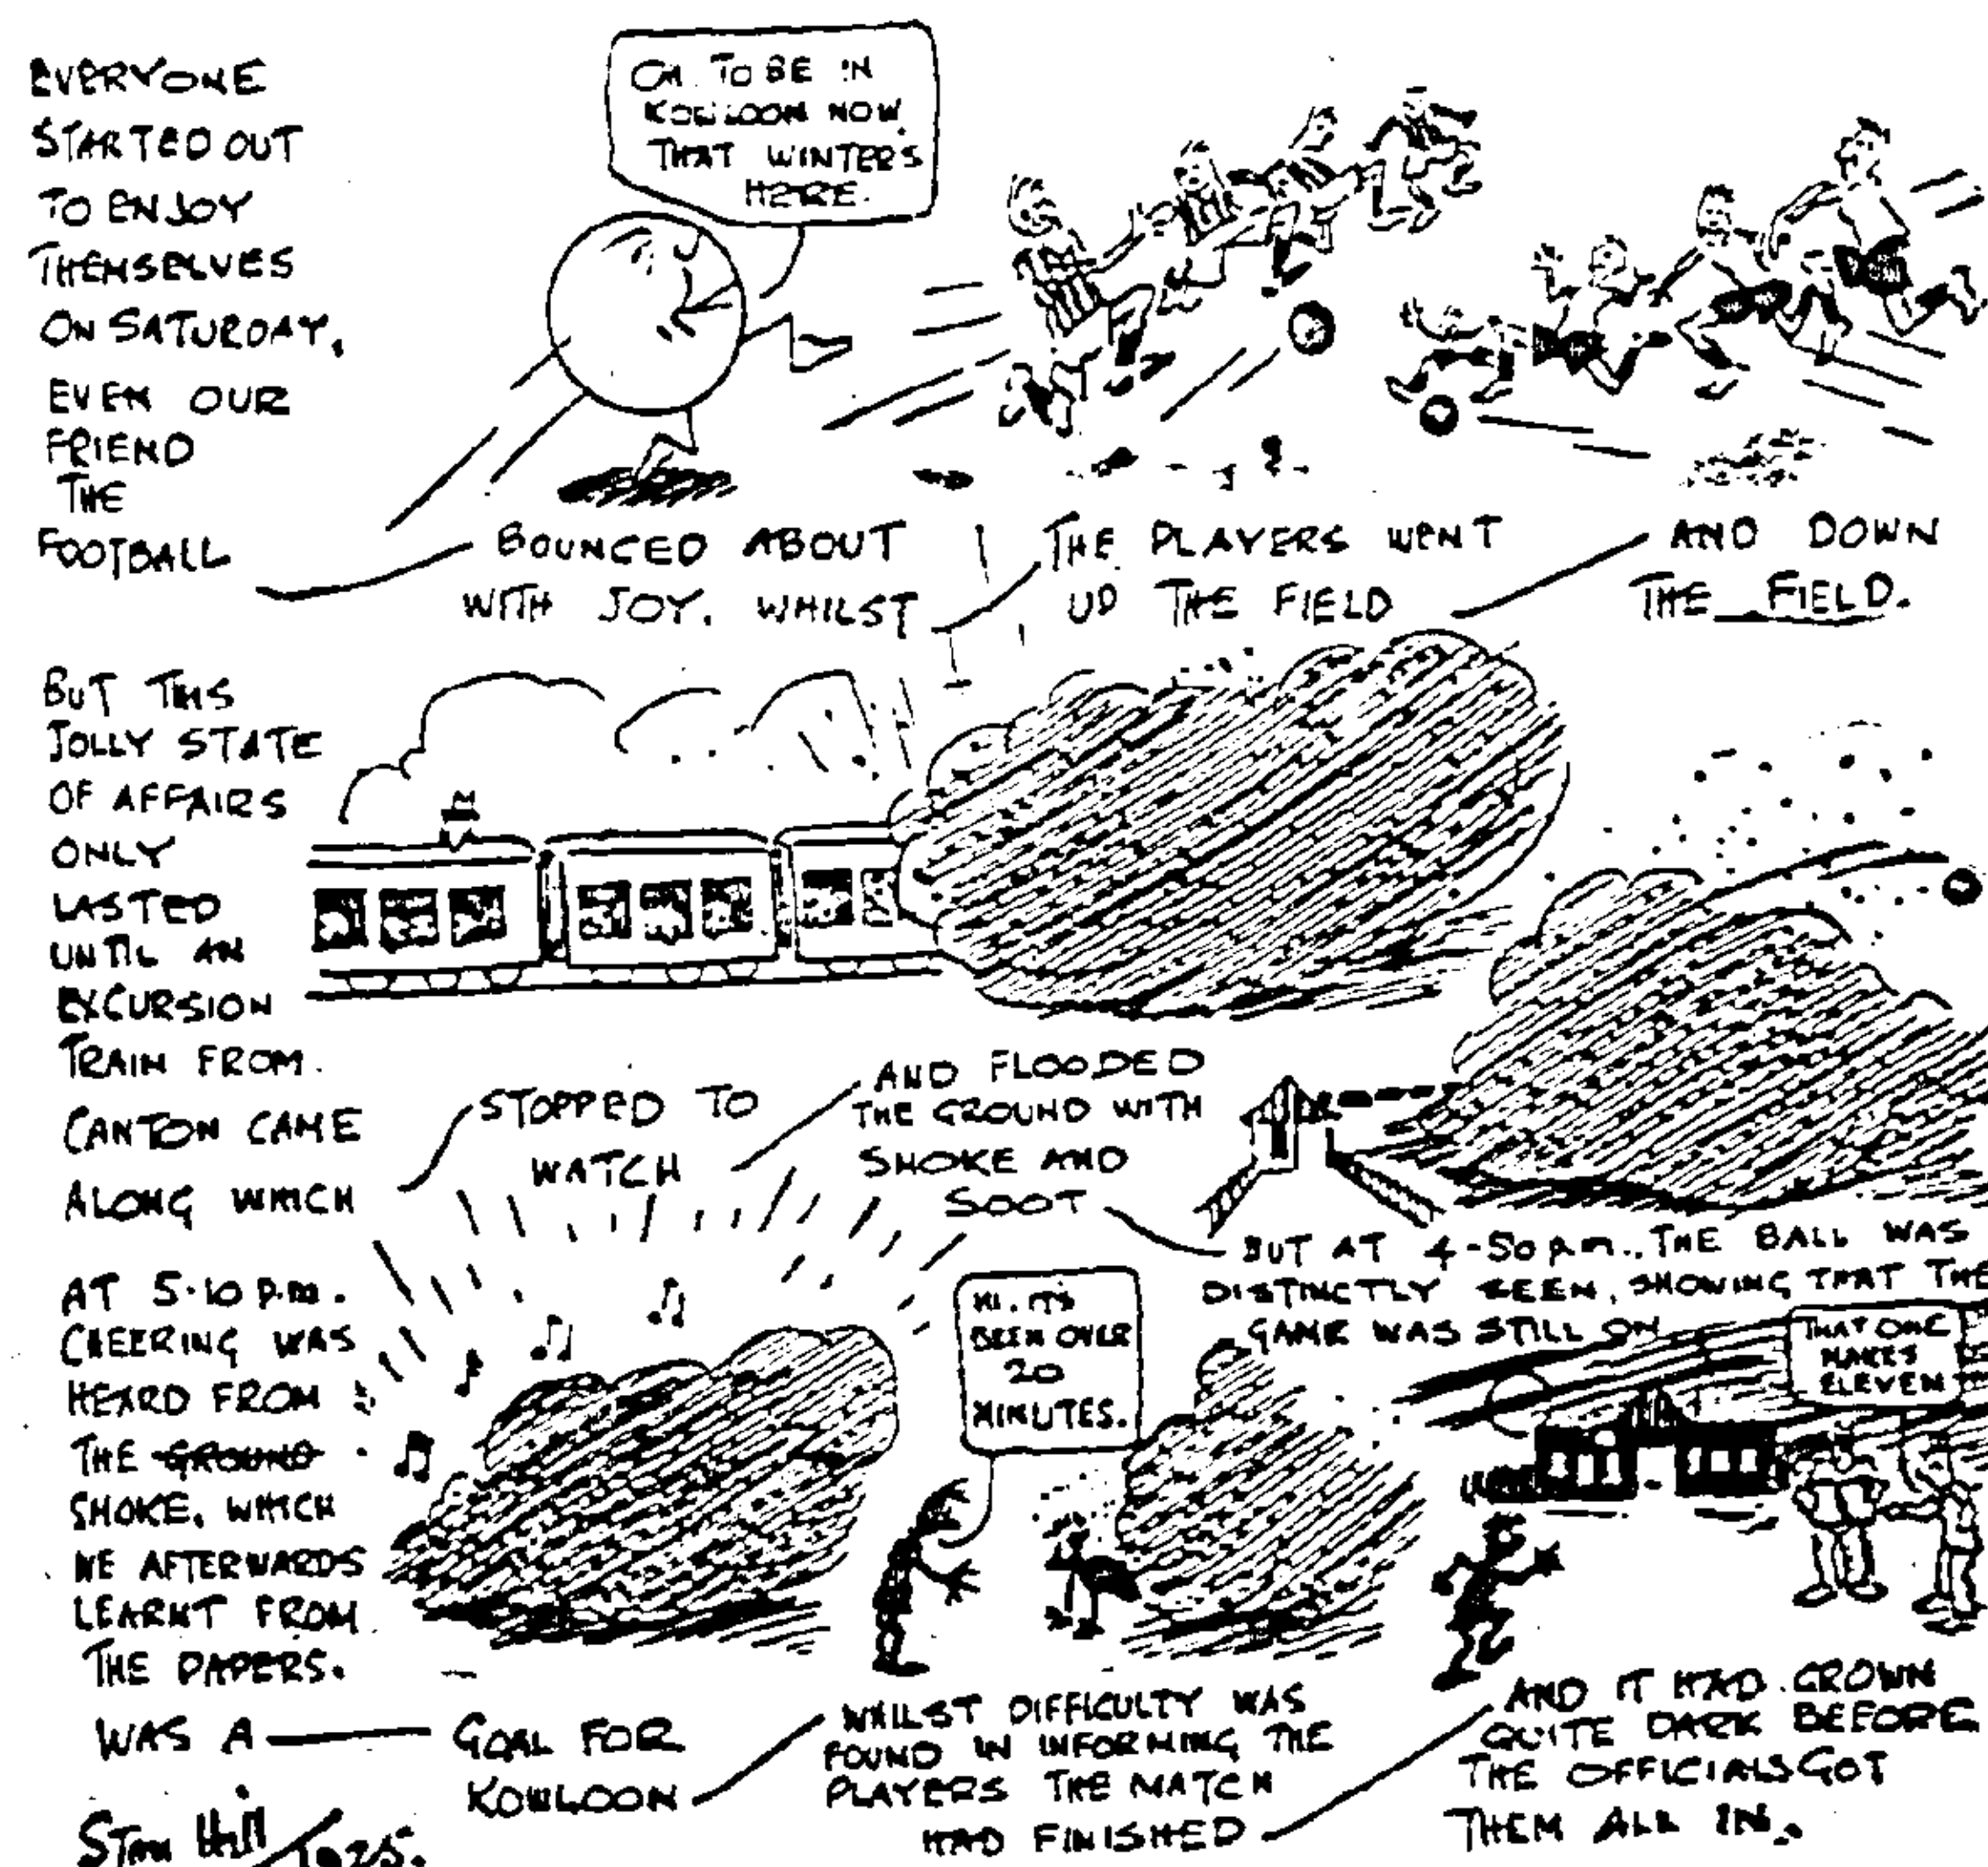 EVERYONE
STARTED OUT
TO ENJOY
THEMSELVES
ON SATURDAY.
EVEN OUR
FRIEND
THE
FOOTBALL
OH TO BE IN
KOWLOON NOW
THAT WINTER'S
HERE.
BOUNCED ABOUT
WITH JOY. WHILST
THE PLAYERS WENT
UP THE FIELD
AND DOWN
THE FIELD.
BUT THIS
JOLLY STATE
OF AFFAIRS
ONLY
LASTED
UNTIL AN
EXCURSION
TRAIN FROM
CANTON CAME
ALONG WHICH
STOPPED TO
WATCH
AND FLOODED
THE GROUND WITH
SMOKE AND
SOOT
BUT AT 4-50 p.m., THE BALL WAS
DISTINCTLY SEEN, SHOWING THAT THE
GAME WAS STILL ON
AT 5.10 p.m.
CHEERING WAS
HEARD FROM
THE GROUND
SMOKE, WHICH
WE AFTERWARDS
LEARNT FROM
THE PAPERS.
WAS A
GOAL FOR
KOWLOON
HI. ITS
BEEN OVER
20
MINUTES.
WHILST DIFFICULTY WAS
FOUND IN INFORMING THE
PLAYERS THE MATCH
HAD FINISHED
THAT ONE
MAKES
ELEVEN
AND IT HAD GROWN
QUITE DARK BEFORE
THE OFFICIALS GOT
THEM ALL IN.
Stan Hill
1925.